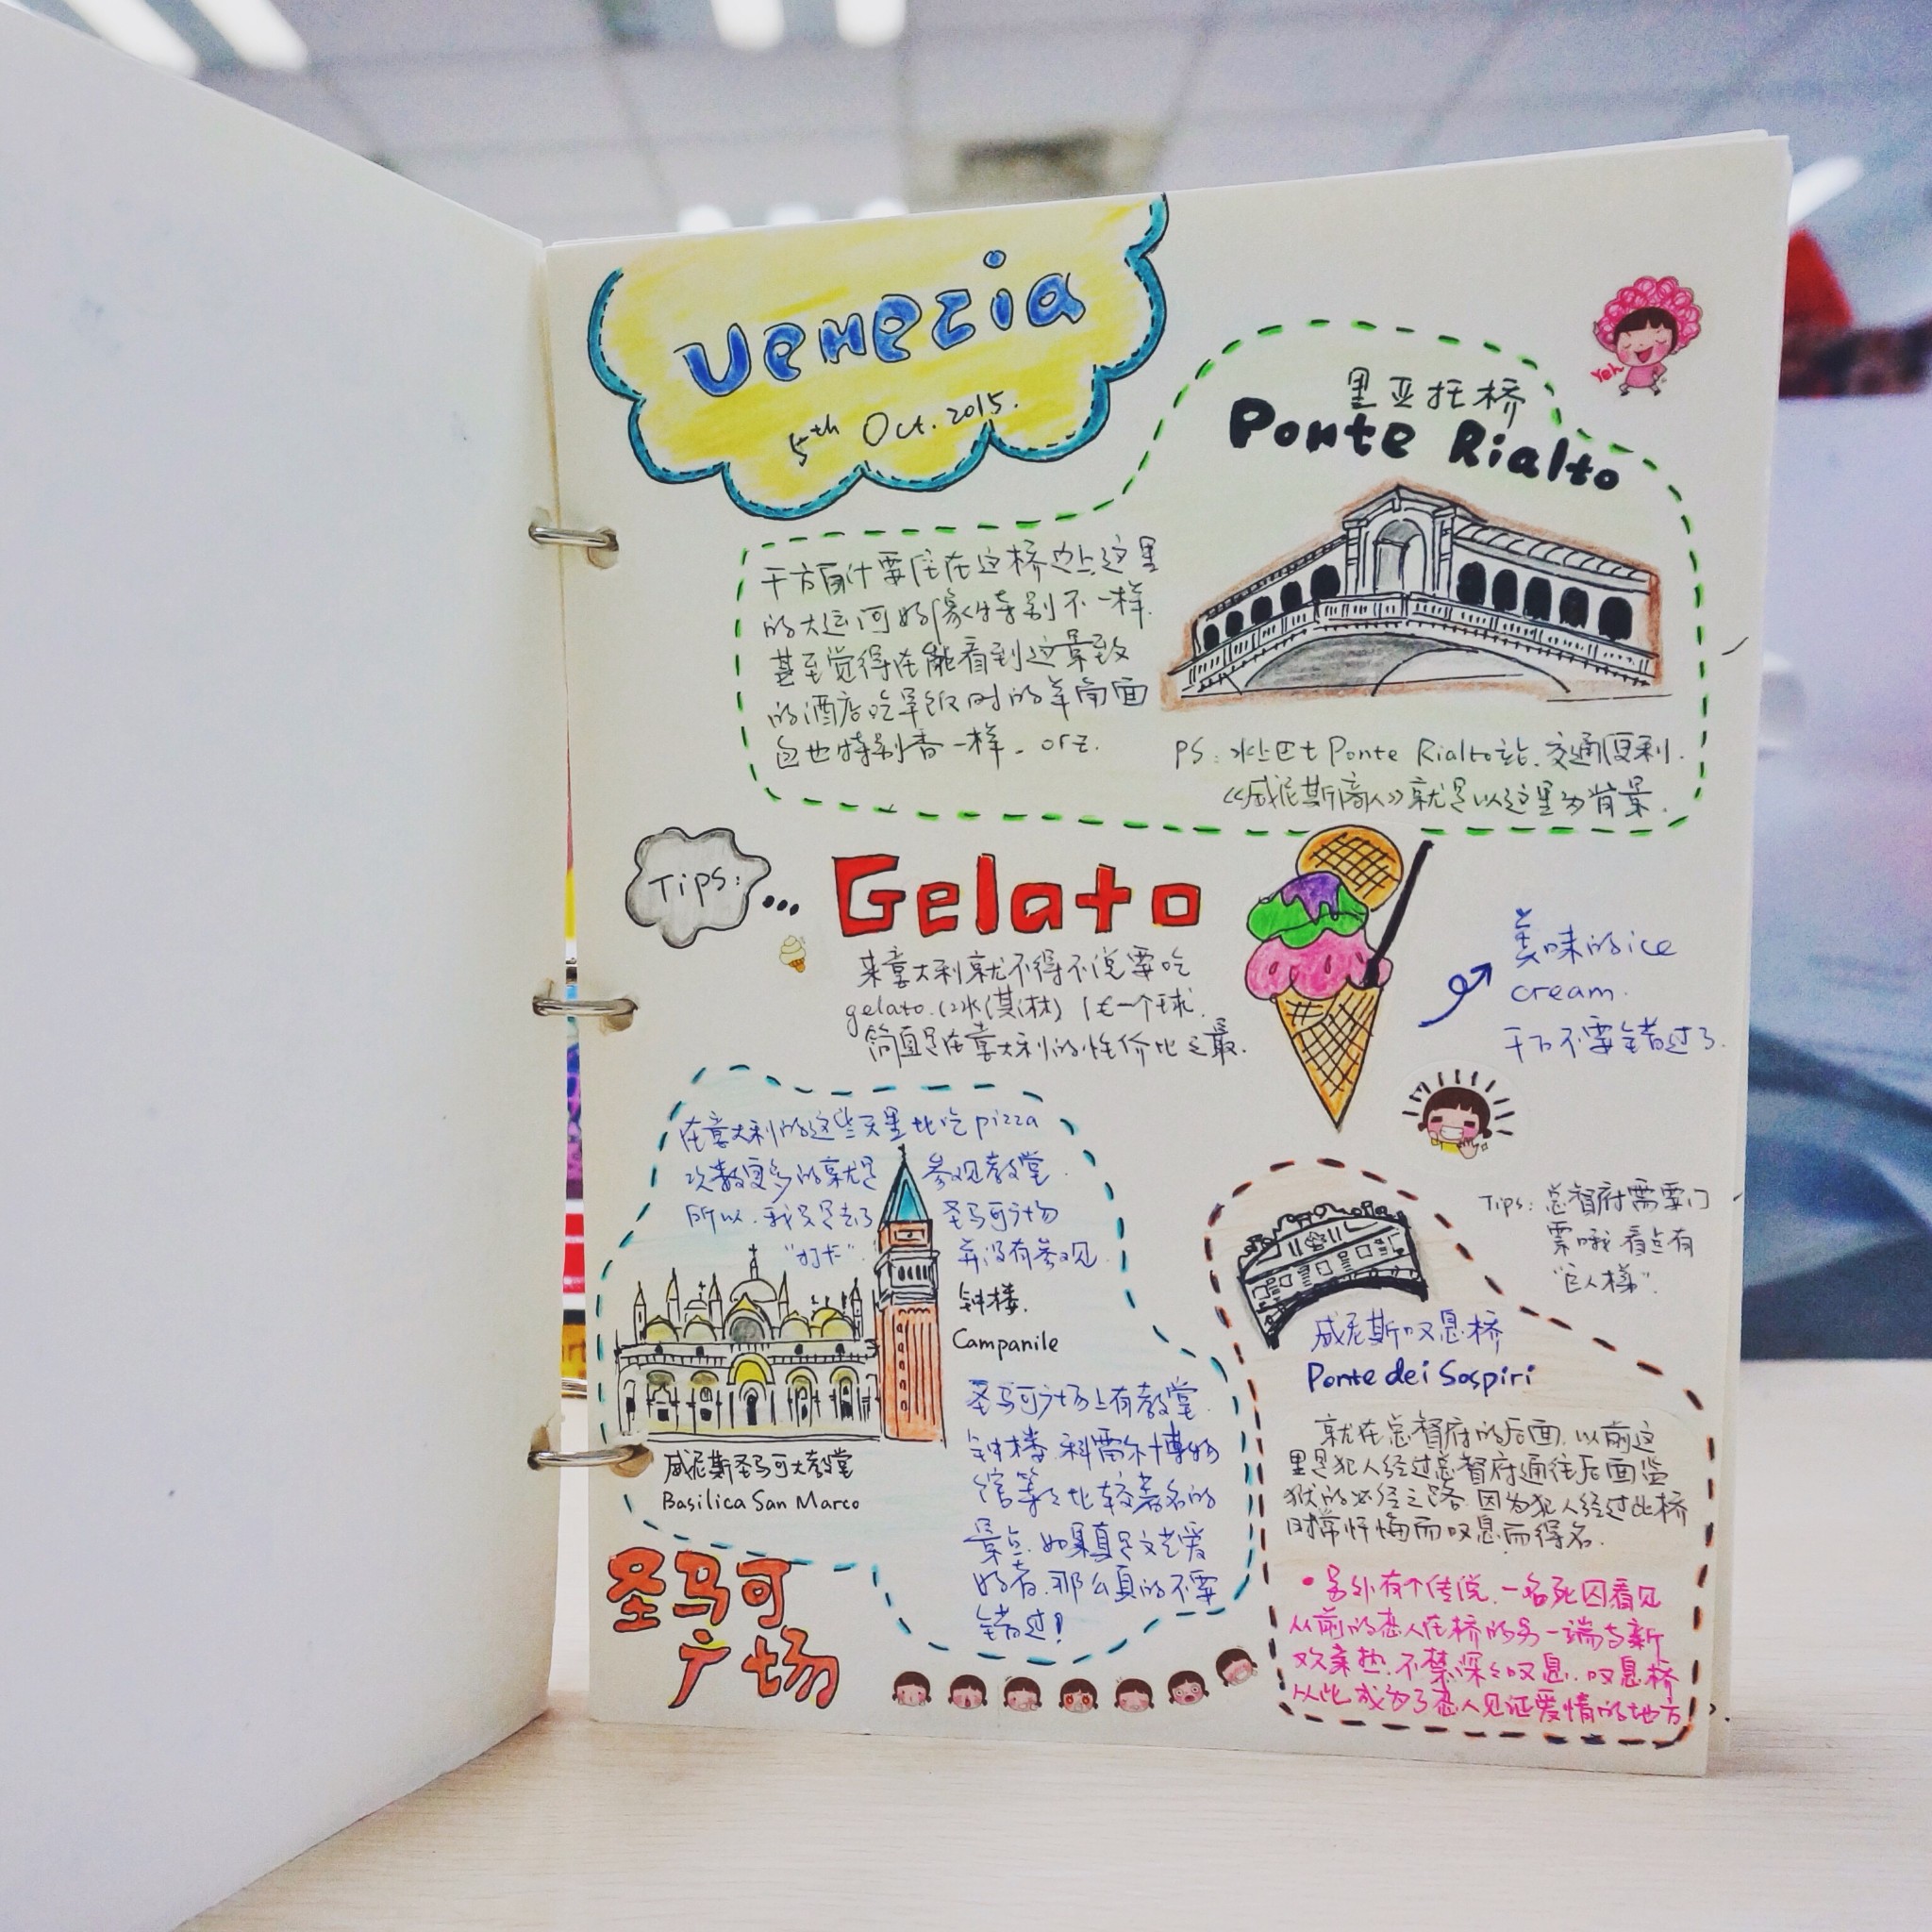 Venezia
5th Oct. 2015.
Yeh
里亚托桥
Ponte Rialto
千方百计要住在这桥边上这里
的大运河好像特别不一样.
甚至觉得在能看到这景致
的酒店吃早饭时的羊角面
包也特别香一样. orz.
PS: 水上巴士Ponte Rialto站.交通便利.
《威尼斯商人》就是以这里为背景.
Tips:
Gelato
来意大利就不得不说要吃
gelato.(冰淇淋) 1€一个球.
简直是在意大利的性价比之最.
美味的ice
cream.
千万不要错过了.
在意大利的这些天里比吃pizza
次数更多的就是 参观教堂.
所以.我只是去了 圣马可广场
"打卡". 并没有参观.
钟楼.
Campanile
圣马可广场上有教堂.
钟楼.科雷尔博物
馆等比较著名的
景点.如果真是文艺爱
好者.那么真的不要
错过!
威尼斯圣马可大教堂
Basilica San Marco
圣马可
广场
Tips: 总督府需要门
票哦.看点有
"巨人梯".
威尼斯叹息桥
Ponte dei Sospiri
就在总督府的后面.以前这
里是犯人经过总督府通往后面监
狱的必经之路.因为犯人经过此桥
时常忏悔而叹息而得名.
•另外有个传说.一名死囚看见
从前的恋人在桥的另一端与新
欢亲热.不禁深深叹息.叹息桥
从此成为了恋人见证爱情的地方